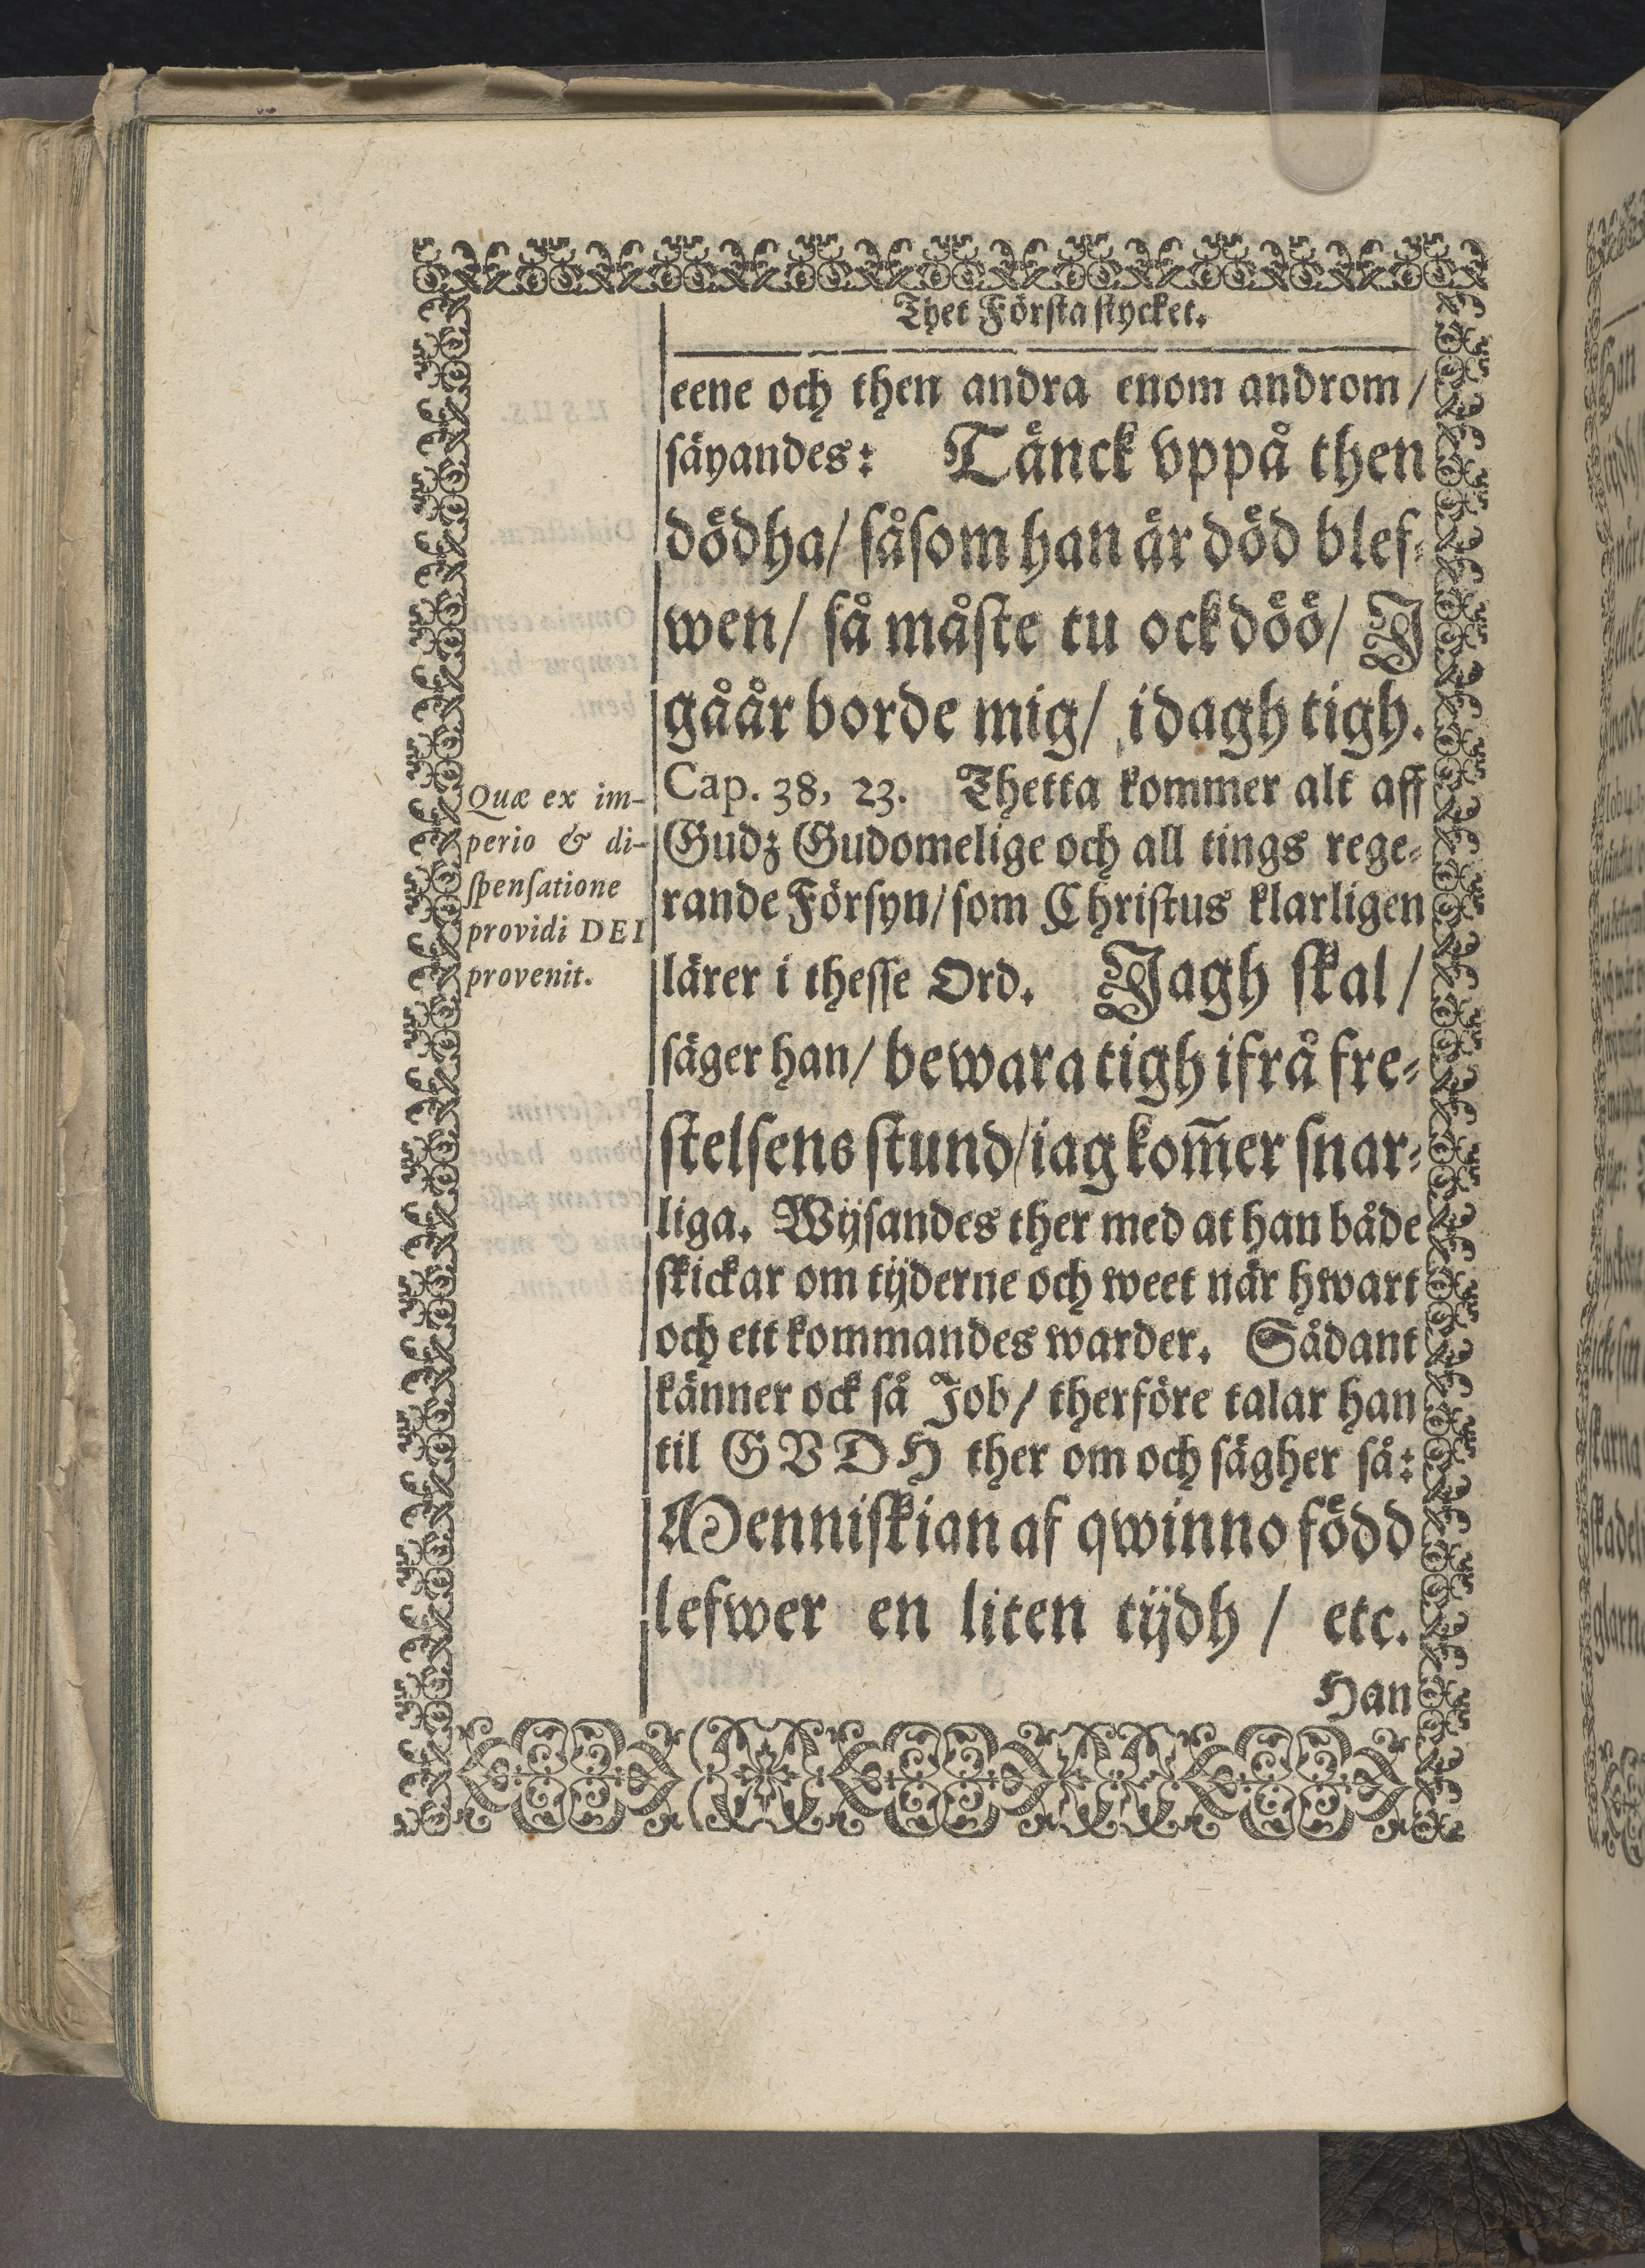 Thet Första stycket.
eene och then andra enom androm /
säyandes: Tänck vppå then
dödha / såsom han är död blef-
wen / så måste tu ock döö / J
gåår borde mig / idagh tigh.
Cap. 38, 23. Thetta kommer alt aff
Gudz Gudomelige och all tings rege-
rande Försyn / som Christus klarligen
lärer i thesse Ord. Jagh skal /
säger han / bewara tigh ifrå fre-
stelsens stund / iag kom̃er snar-
liga. Wijsandes ther med at han både
skickar om tijderne och weet när hwart
och ett kommandes warder. Sådant
känner ock så Job / therföre talar han
til GVDH ther om och sägher så:
Menniskian af qwinno född
lefwer en liten tijdh / etc.
Han
Quæ ex im-
perio & di-
spensatione
providi DEI
provenit.